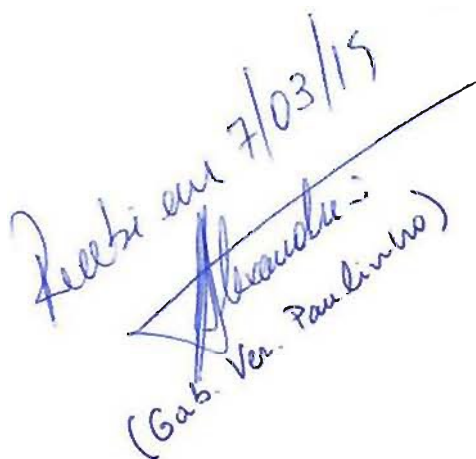 Recebi em 7/03/19
Alexandre
(Gab. Ver. Paulinho)